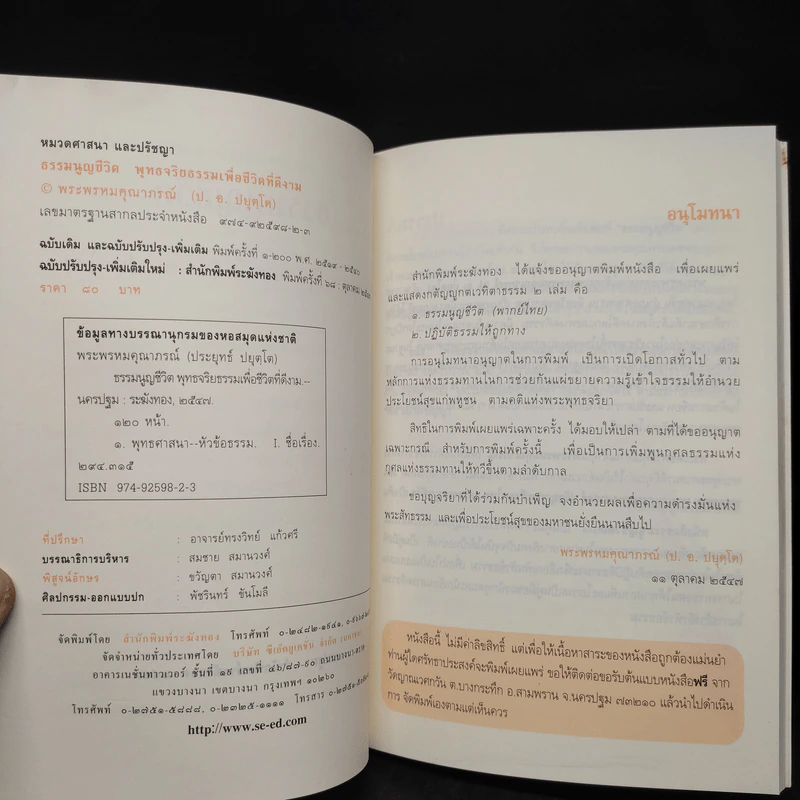 หมวดศาสนา และปรัชญา
ธรรมนูญชีวิต พุทธจริยธรรมเพื่อชีวิตที่ดีงาม
© พระพรหมคุณาภรณ์ (ป. อ. ปยุตฺโต)
เลขมาตรฐานสากลประจำหนังสือ ๙๗๔-๙๒๕๙๘-๒-๓
ฉบับเดิม และฉบับปรับปรุง-เพิ่มเติม พิมพ์ครั้งที่ ๑-๒๐๐ พ.ศ. ๒๕๑๙ - ๒๕๔๐
ฉบับปรับปรุง-เพิ่มเติมใหม่ : สำนักพิมพ์ระฆังทอง พิมพ์ครั้งที่ ๖๘ : ตุลาคม
ราคา ๘๐ บาท
ข้อมูลทางบรรณานุกรมของหอสมุดแห่งชาติ
พระพรหมคุณาภรณ์ (ประยุทธ์ ปยุตฺโต)
ธรรมนูญชีวิต พุทธจริยธรรมเพื่อชีวิตที่ดีงาม.--
นครปฐม : ระฆังทอง, ๒๕๔๗.
๑๒๐ หน้า.
๑. พุทธศาสนา--หัวข้อธรรม. I. ชื่อเรื่อง.
๒๙๔.๓๑๕
ISBN 974-92598-2-3
ที่ปรึกษา : อาจารย์ทรงวิทย์ แก้วศรี
บรรณาธิการบริหาร : สมชาย สมานวงศ์
พิสูจน์อักษร : ขวัญตา สมานวงศ์
ศิลปกรรม-ออกแบบปก : พัชรินทร์ ขันโมลี
จัดพิมพ์โดย สำนักพิมพ์ระฆังทอง โทรศัพท์ ๐-๒๔๘๒-๑๙๔๑,
จัดจำหน่ายทั่วประเทศโดย บริษัท ซีเอ็ดยูเคชัน จำกัด (มหาชน)
อาคารเนชั่นทาวเวอร์ ชั้นที่ ๑๙ เลขที่ ๔๖/๘๗-๙๐ ถนนบางนา-ตราด
แขวงบางนา เขตบางนา กรุงเทพฯ ๑๐๒๖๐
โทรศัพท์ ๐-๒๗๕๑-๕๘๘๘, ๐-๒๓๒๕-๑๑๑๑ โทรสาร
http://www.se-ed.com
อนุโมทนา
สำนักพิมพ์ระฆังทอง ได้แจ้งขออนุญาตพิมพ์หนังสือ เพื่อเผยแพร่
และแสดงกตัญญูกตเวทิตาธรรม ๒ เล่ม คือ
๑. ธรรมนูญชีวิต (พากย์ไทย)
๒. ปฏิบัติธรรมให้ถูกทาง
การอนุโมทนาอนุญาตในการพิมพ์ เป็นการเปิดโอกาสทั่วไป ตาม
หลักการแห่งธรรมทานในการช่วยกันแผ่ขยายความรู้เข้าใจธรรมให้อำนวย
ประโยชน์สุขแก่พหูชน ตามคติแห่งพระพุทธจริยา
สิทธิในการพิมพ์เผยแพร่เฉพาะครั้ง ได้มอบให้เปล่า ตามที่ได้ขออนุญาต
เฉพาะกรณี สำหรับการพิมพ์ครั้งนี้ เพื่อเป็นการเพิ่มพูนกุศลธรรมแห่ง
กุศลแห่งธรรมทานให้ทวีขึ้นตามลำดับกาล
ขอบุญจริยาที่ได้ร่วมกันบำเพ็ญ จงอำนวยผลเพื่อความดำรงมั่นแห่ง
พระสัทธรรม และเพื่อประโยชน์สุขของมหาชนยั่งยืนนานสืบไป
พระพรหมคุณาภรณ์ (ป. อ. ปยุตฺโต)
๑๑ ตุลาคม ๒๕๔๗
หนังสือนี้ ไม่มีค่าลิขสิทธิ์ แต่เพื่อให้เนื้อหาสาระของหนังสือถูกต้องแม่นยำ
ท่านผู้ใดศรัทธาประสงค์จะพิมพ์เผยแพร่ ขอให้ติดต่อขอรับต้นแบบหนังสือฟรี จาก
วัดญาณเวศกวัน ต.บางกระทึก อ.สามพราน จ.นครปฐม ๗๓๒๑๐ แล้วนำไปดำเนิน
การ จัดพิมพ์เองตามแต่เห็นควร